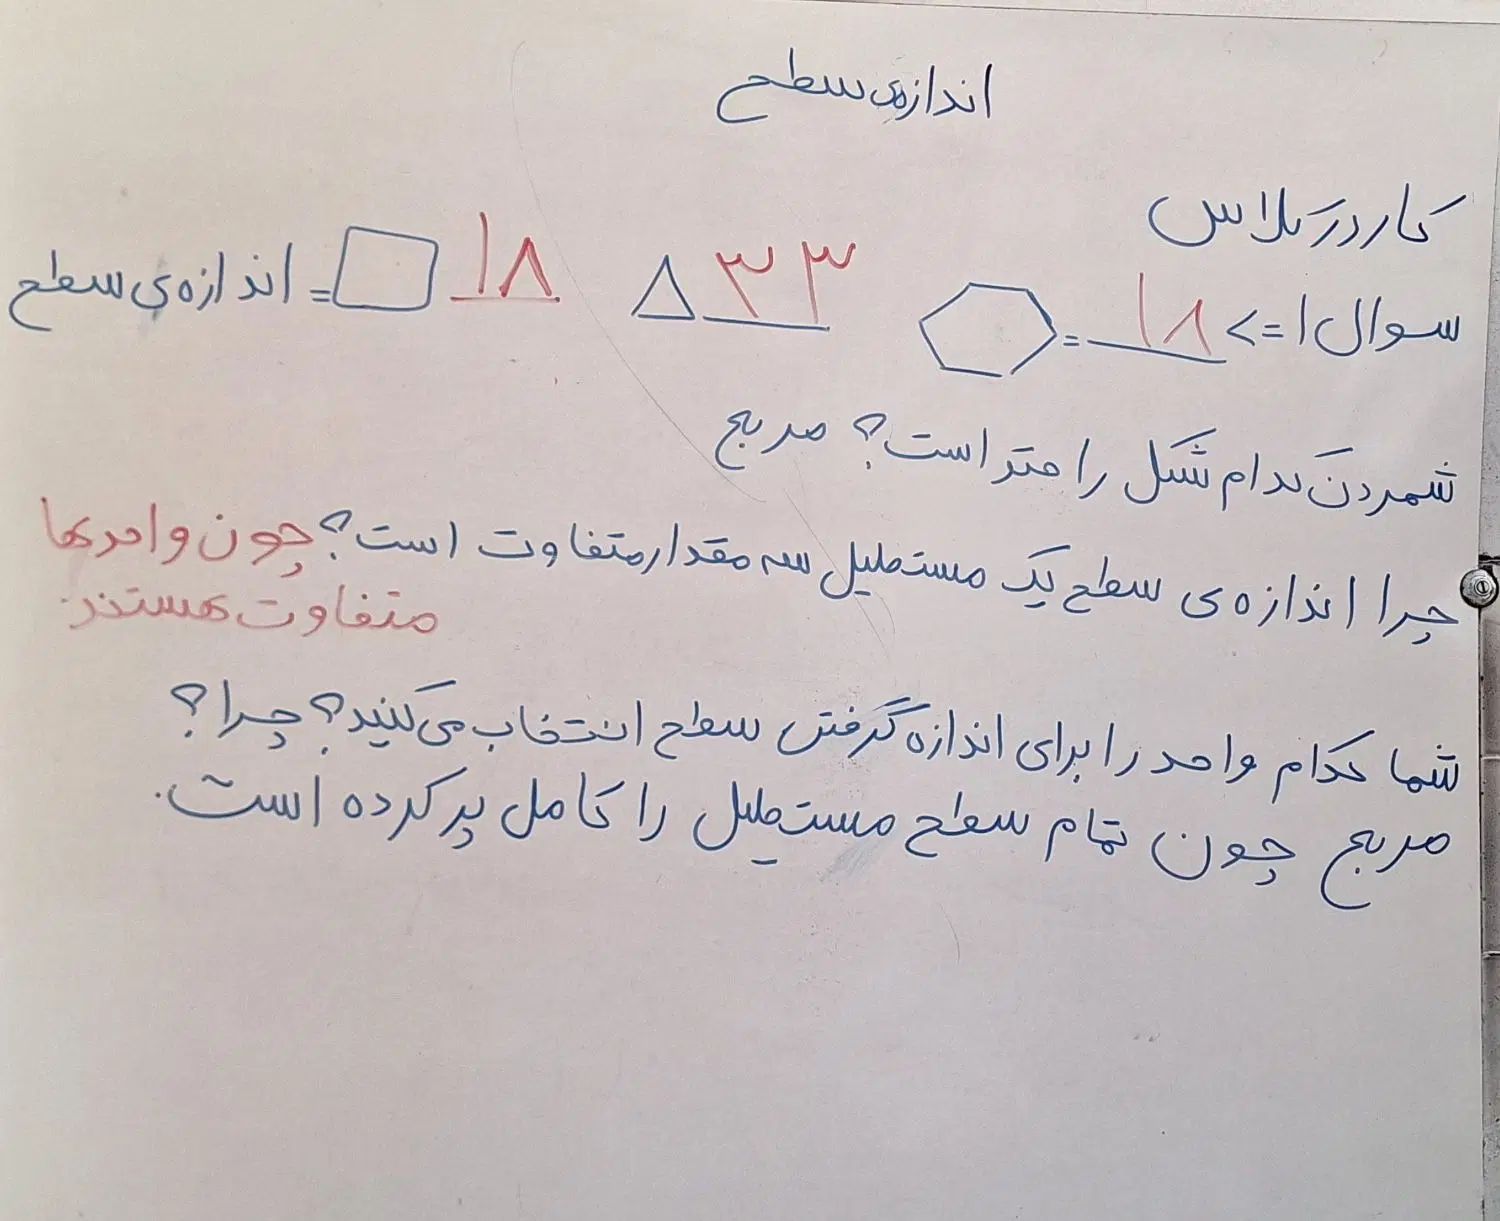 اندازه‌ی سطح
کار در کلاس
سوال ۱ => ۱۸ = ۳۳ ۱۸ = اندازه‌ی سطح
شمردن کدام شکل راحتتر است؟ مربع
چرا اندازه‌ی سطح یک مستطیل سه مقدار متفاوت است؟ چون واحدها
متفاوت هستند.
شما کدام واحد را برای اندازه گرفتن سطح انتخاب می‌کنید؟ چرا؟
مربع چون تمام سطح مستطیل را کامل پر کرده است.